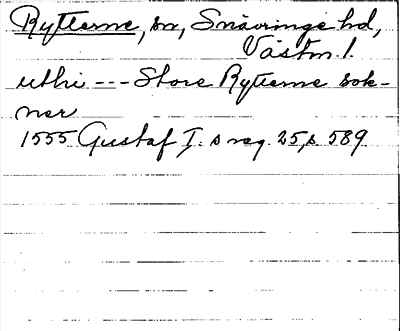 Rytterne, sn, Snävringe hd,
Västm l.
uthi --- Store Rytterne sok-
ner
1555 Gustaf I. s reg. 25, s. 589